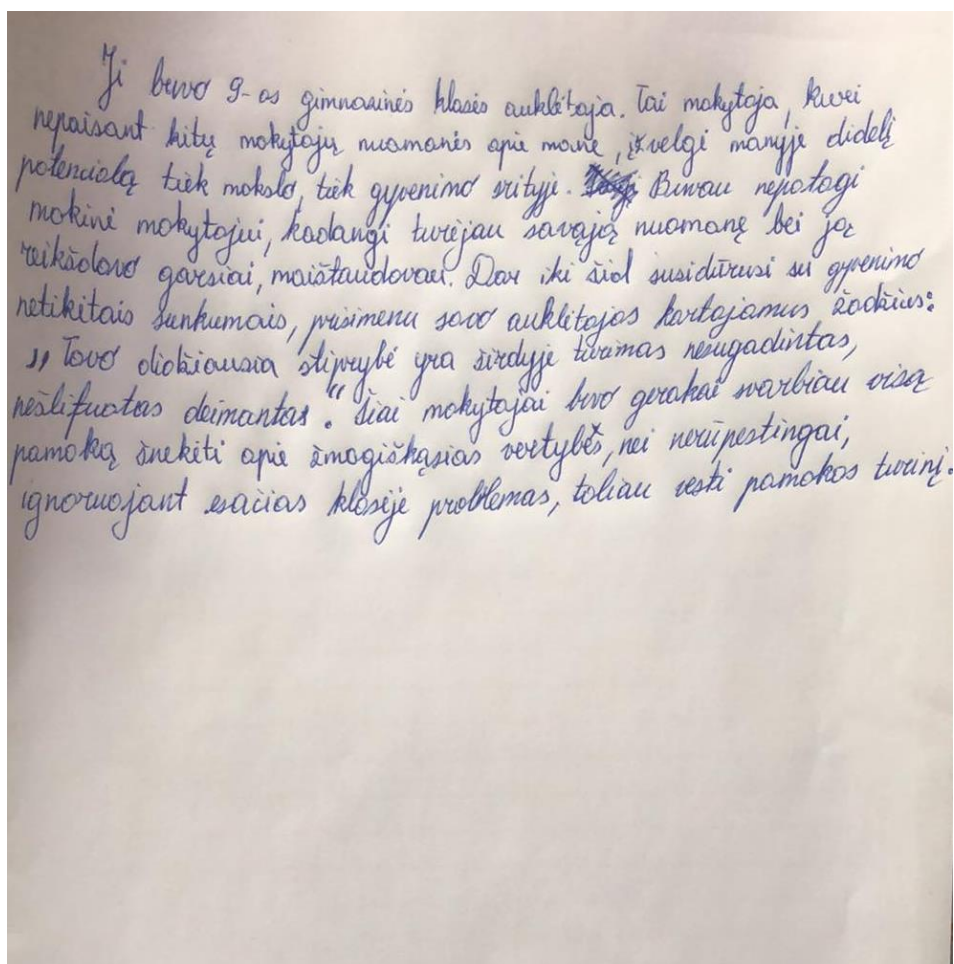 Ji buvo 9-os gimnazinės klasės auklėtoja. Tai mokytoja, kuri
nepaisant kitų mokytojų nuomonės apie mane, įžvelgė manyje didelį
potencialą tiek mokslo, tiek gyvenimo srityje. Buvau nepatogi
mokinė mokytojui, kadangi turėjau savąją nuomonę bei ją
reikšdavo garsiai, maištaudavau. Dar iki šiol susidūrusi su gyvenimo
netikėtais sunkumais, prisimenu savo auklėtojos kartojamus žodžius:
„Tavo didžiausia stiprybė yra širdyje turimas nesugadintas,
nešlifuotas deimantas." Šiai mokytojai buvo gerokai svarbiau visą
pamoką šnekėti apie žmogiškąsias vertybės, nei nerūpestingai,
ignoruojant esačias klasėje problemas, toliau vesti pamokos turinį.